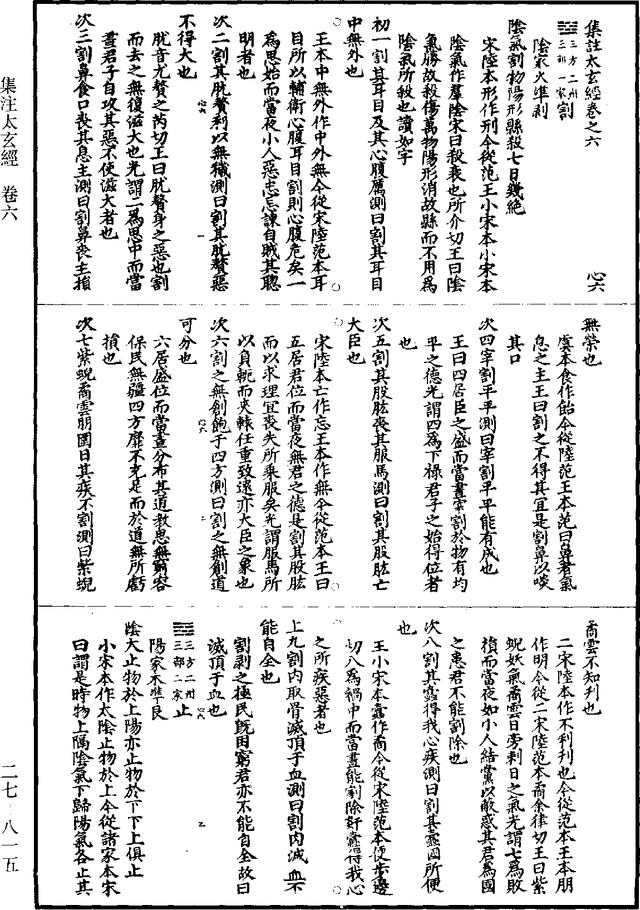 集注太玄經卷之六
三方二州三部一家割
陰家火準剥
陰氣割物陽形縣殺七日幾絶
宋陸本形作刑今從范王小宋本小宋本
陰氣作羣陰宋曰殺衰也所介切王曰陰
氣勝故殺傷萬物陽形消故縣而不用爲
陰氣所殺也讀如字
初一割其耳目及其心腹厲測曰割其耳目
中無外也
王本中無外作中外無今從宋陸范本耳
目所以輔衛心腹耳目割則心腹危矣一
爲思始而當夜小人惡忠忘諫自賊其聰
明者也
次二割其肬贅利以無穢測曰割其肬贅惡
不得大也
肬音尤贅之芮切王曰肬贅身之惡也割
而去之無復滋大也光謂二爲思中而當
晝君子自攻其惡不使滋大者也
次三割鼻食口喪其息主測曰割鼻喪主損
無榮也
虞本食作飴今從陸范王本范曰鼻者氣
息之主王曰割之不得其宜是割鼻以啖
其口
次四宰割平平測曰宰割平平能有成也
王曰四居臣之盛而當晝宰割於物有均
平之德光謂四爲下禄君子之始得位者
也
次五割其股肱喪其服馬測曰割其股肱亡
大臣也
宋陸本亡作忘王本作無今從范本王曰
五居君位而當夜無君之德是割其股肱
而以求理宜喪失所乘服矣光謂服馬所
以負軛而夾轅任重致遠亦大臣之象也
次六割之無創飽于四方測曰割之無創道
可分也
六居盛位而當晝分布其道教思無窮容
保民無疆四方靡不充足而於道無所虧
損也
次七紫蜺矞雲朋圍日其疾不割測曰紫蜺
矞雲不知刋也
二宋陸本作不利刋也今從范本王本朋
作明今從二宋陸范本矞余律切王曰紫
蜺妖氣矞雲日旁刺日之氣光謂七爲敗
損而當夜如小人結黨以蔽惑其君爲國
之患君不能割除也
次八割其蠹得我心疾測曰割其蠹國所便
也
王小宋本蠹作矞今從宋陸范本便步邊
切八爲禍中而當晝能割除奸蠹得我心
之所疾惡者也
上九割肉取骨滅頂于血測曰割肉滅血不
能自全也
割剥之極民既困窮君亦不能自全故曰
滅頂于血也
三方二州三部二家止
陽家木準艮
陰大止物於上陽亦止物於下下上俱止
小宋本作太陰止物於上今從諸家本宋
曰謂是時物上隔陰氣下歸陽氣各止其
集注太玄經　卷六
二七－八一五